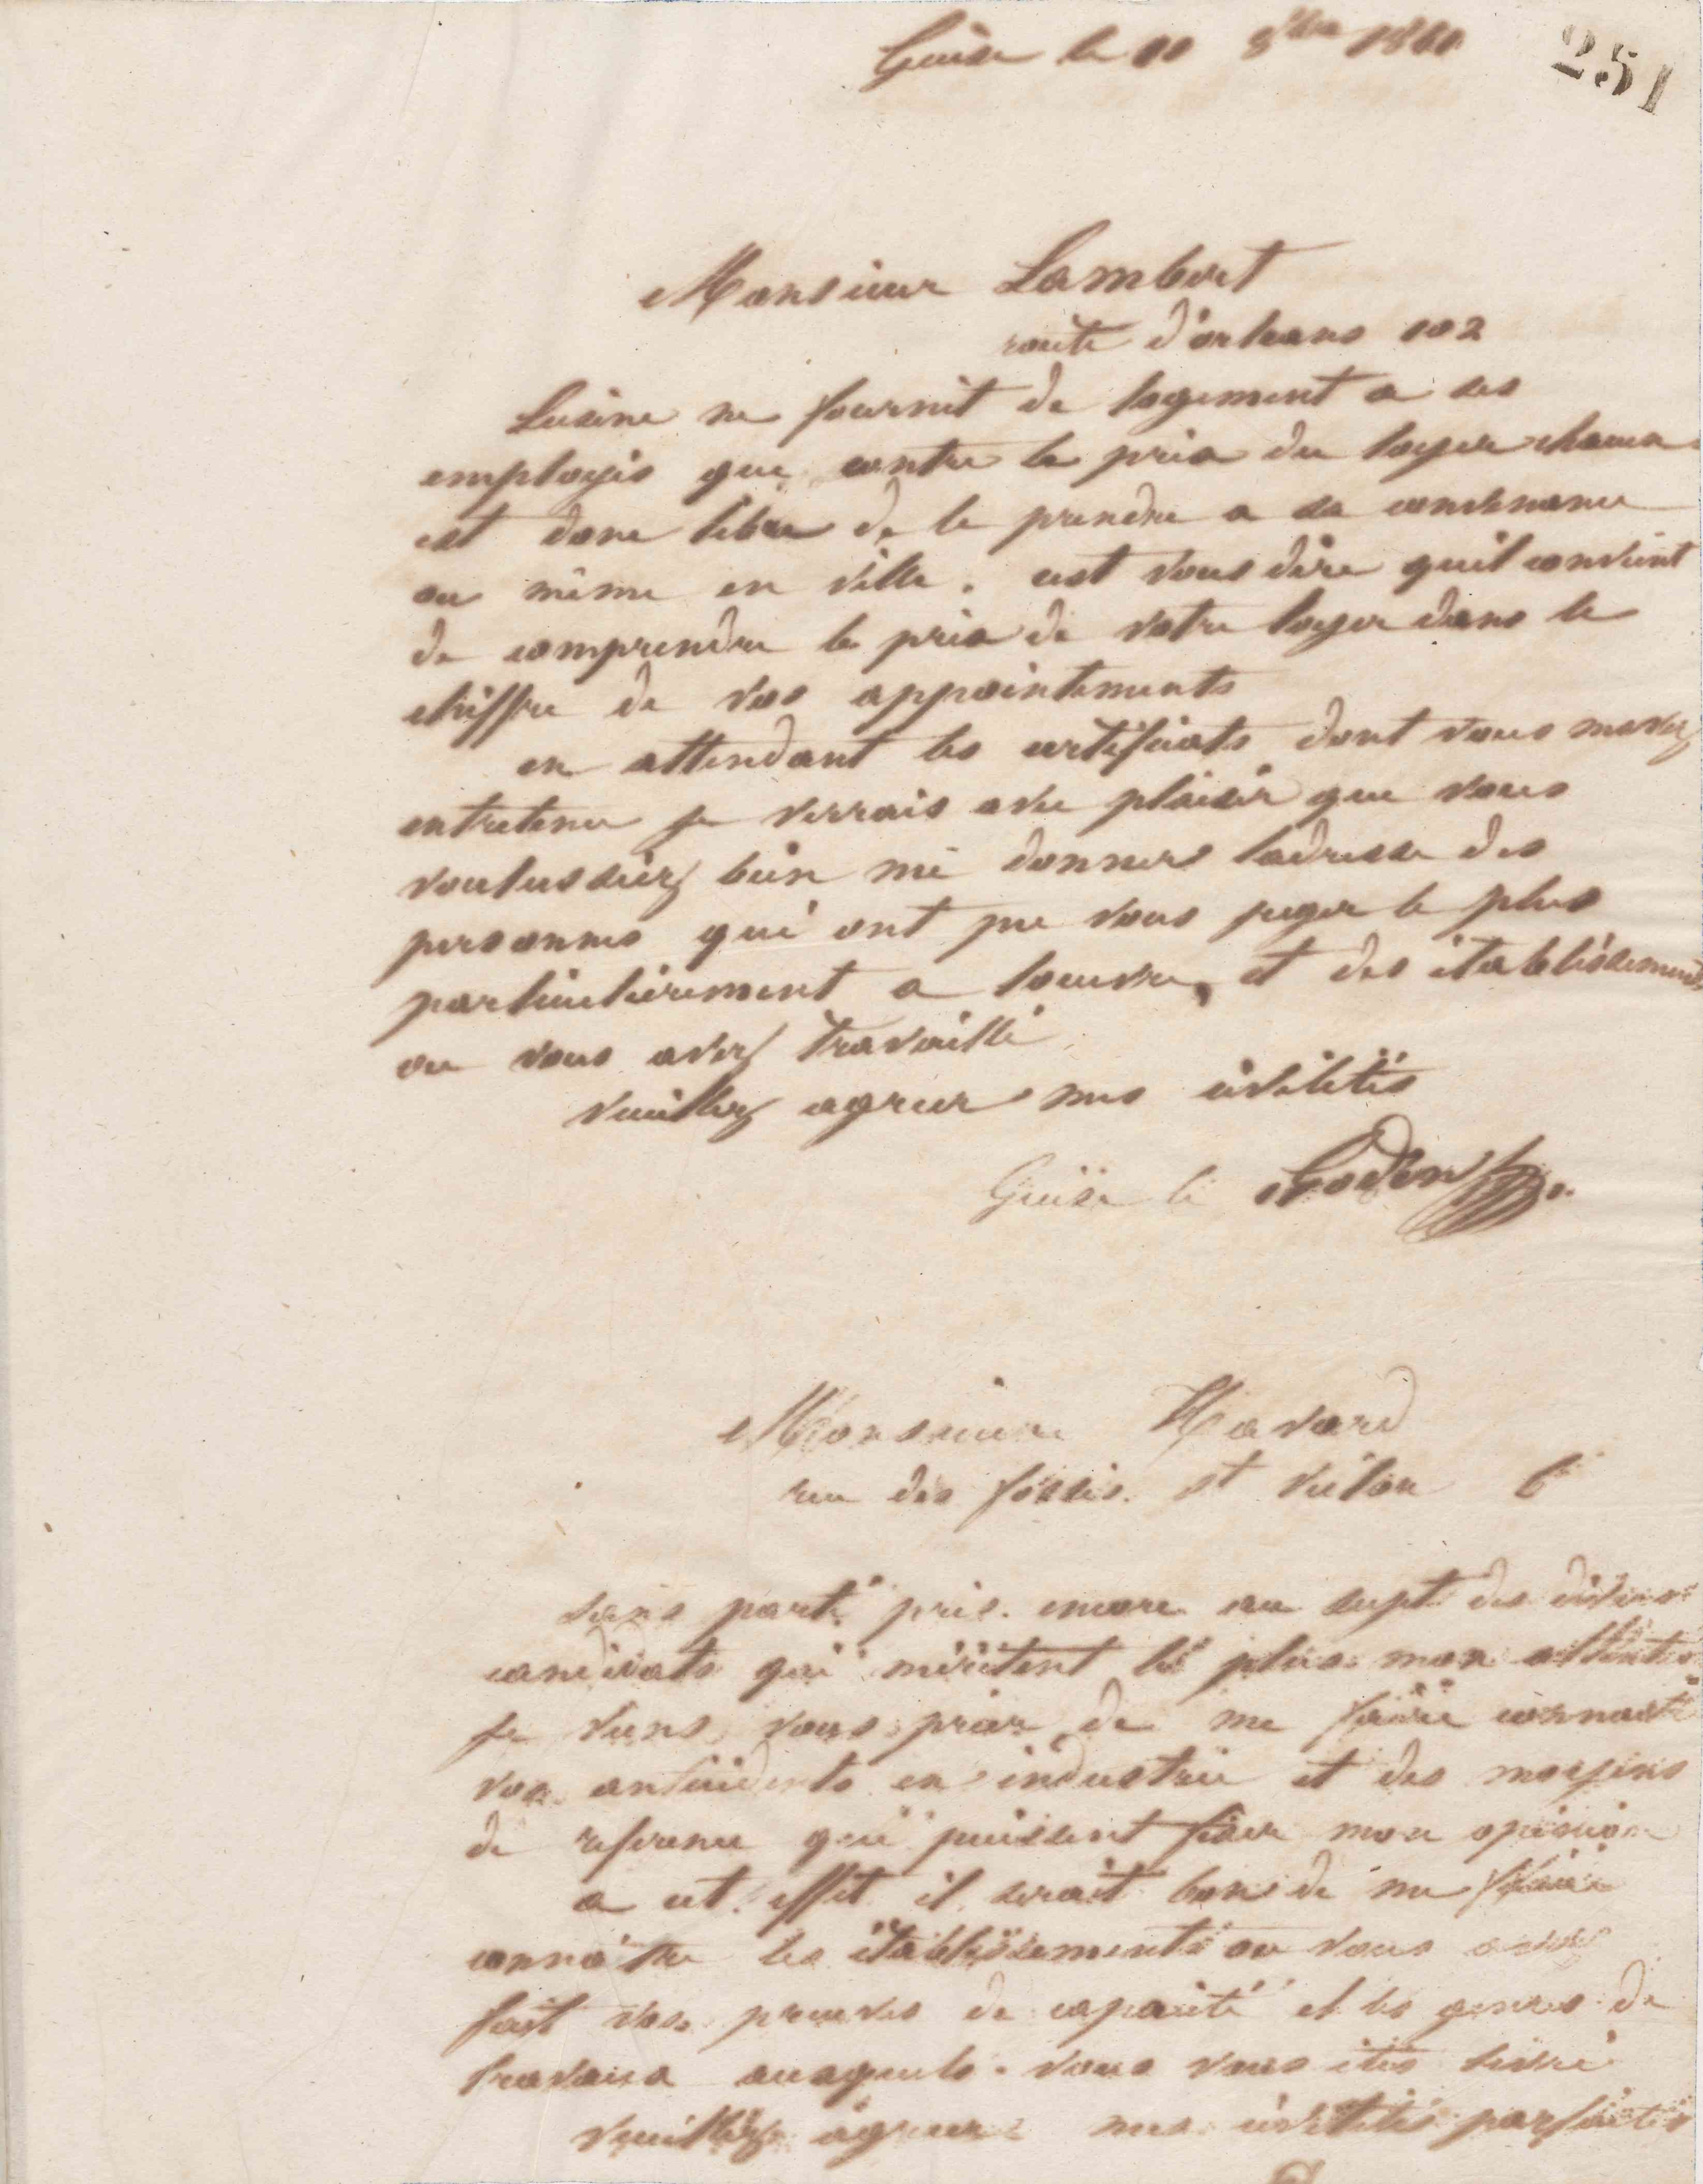 Guise le 10 8bre 1860
251
Monsieur Lambert
route d'orleans 102
Lusine ne fournit de logement a ses
employés que contre le prix du loyer chacun
est donc libre de le prendre a sa convenance
ou même en ville. cest vous dire quil convient
de comprendre le prix de votre loyer dans le
chiffre de vos appointements
en attendant les certificats dont vous mavez
entretenu je verrais avec plaisir que vous
voulussiez bien me donner ladresse des
personnes qui ont pu vous juger le plus
particulièrement a loeuvre, et des établissements
ou vous avez travaillé
veuillez agreer mes civilités
Guise le Godin
Monsieur Havard
rue des fossés st victor 6
sans parti pris encore au sujet des divers
candidats qui méritent le plus mon attention
je viens vous prier de me faire connaitre
vos antécédents en industrie et des moyens
de reference qui puissent fixer mon opinion
a cet effet il serait bon de me faire
connaître les établissements ou vous avez
fait vos preuves de capacité et les genres de
travaux auxquels vous vous êtes livré
veuillez agreer mes civilités parfaites